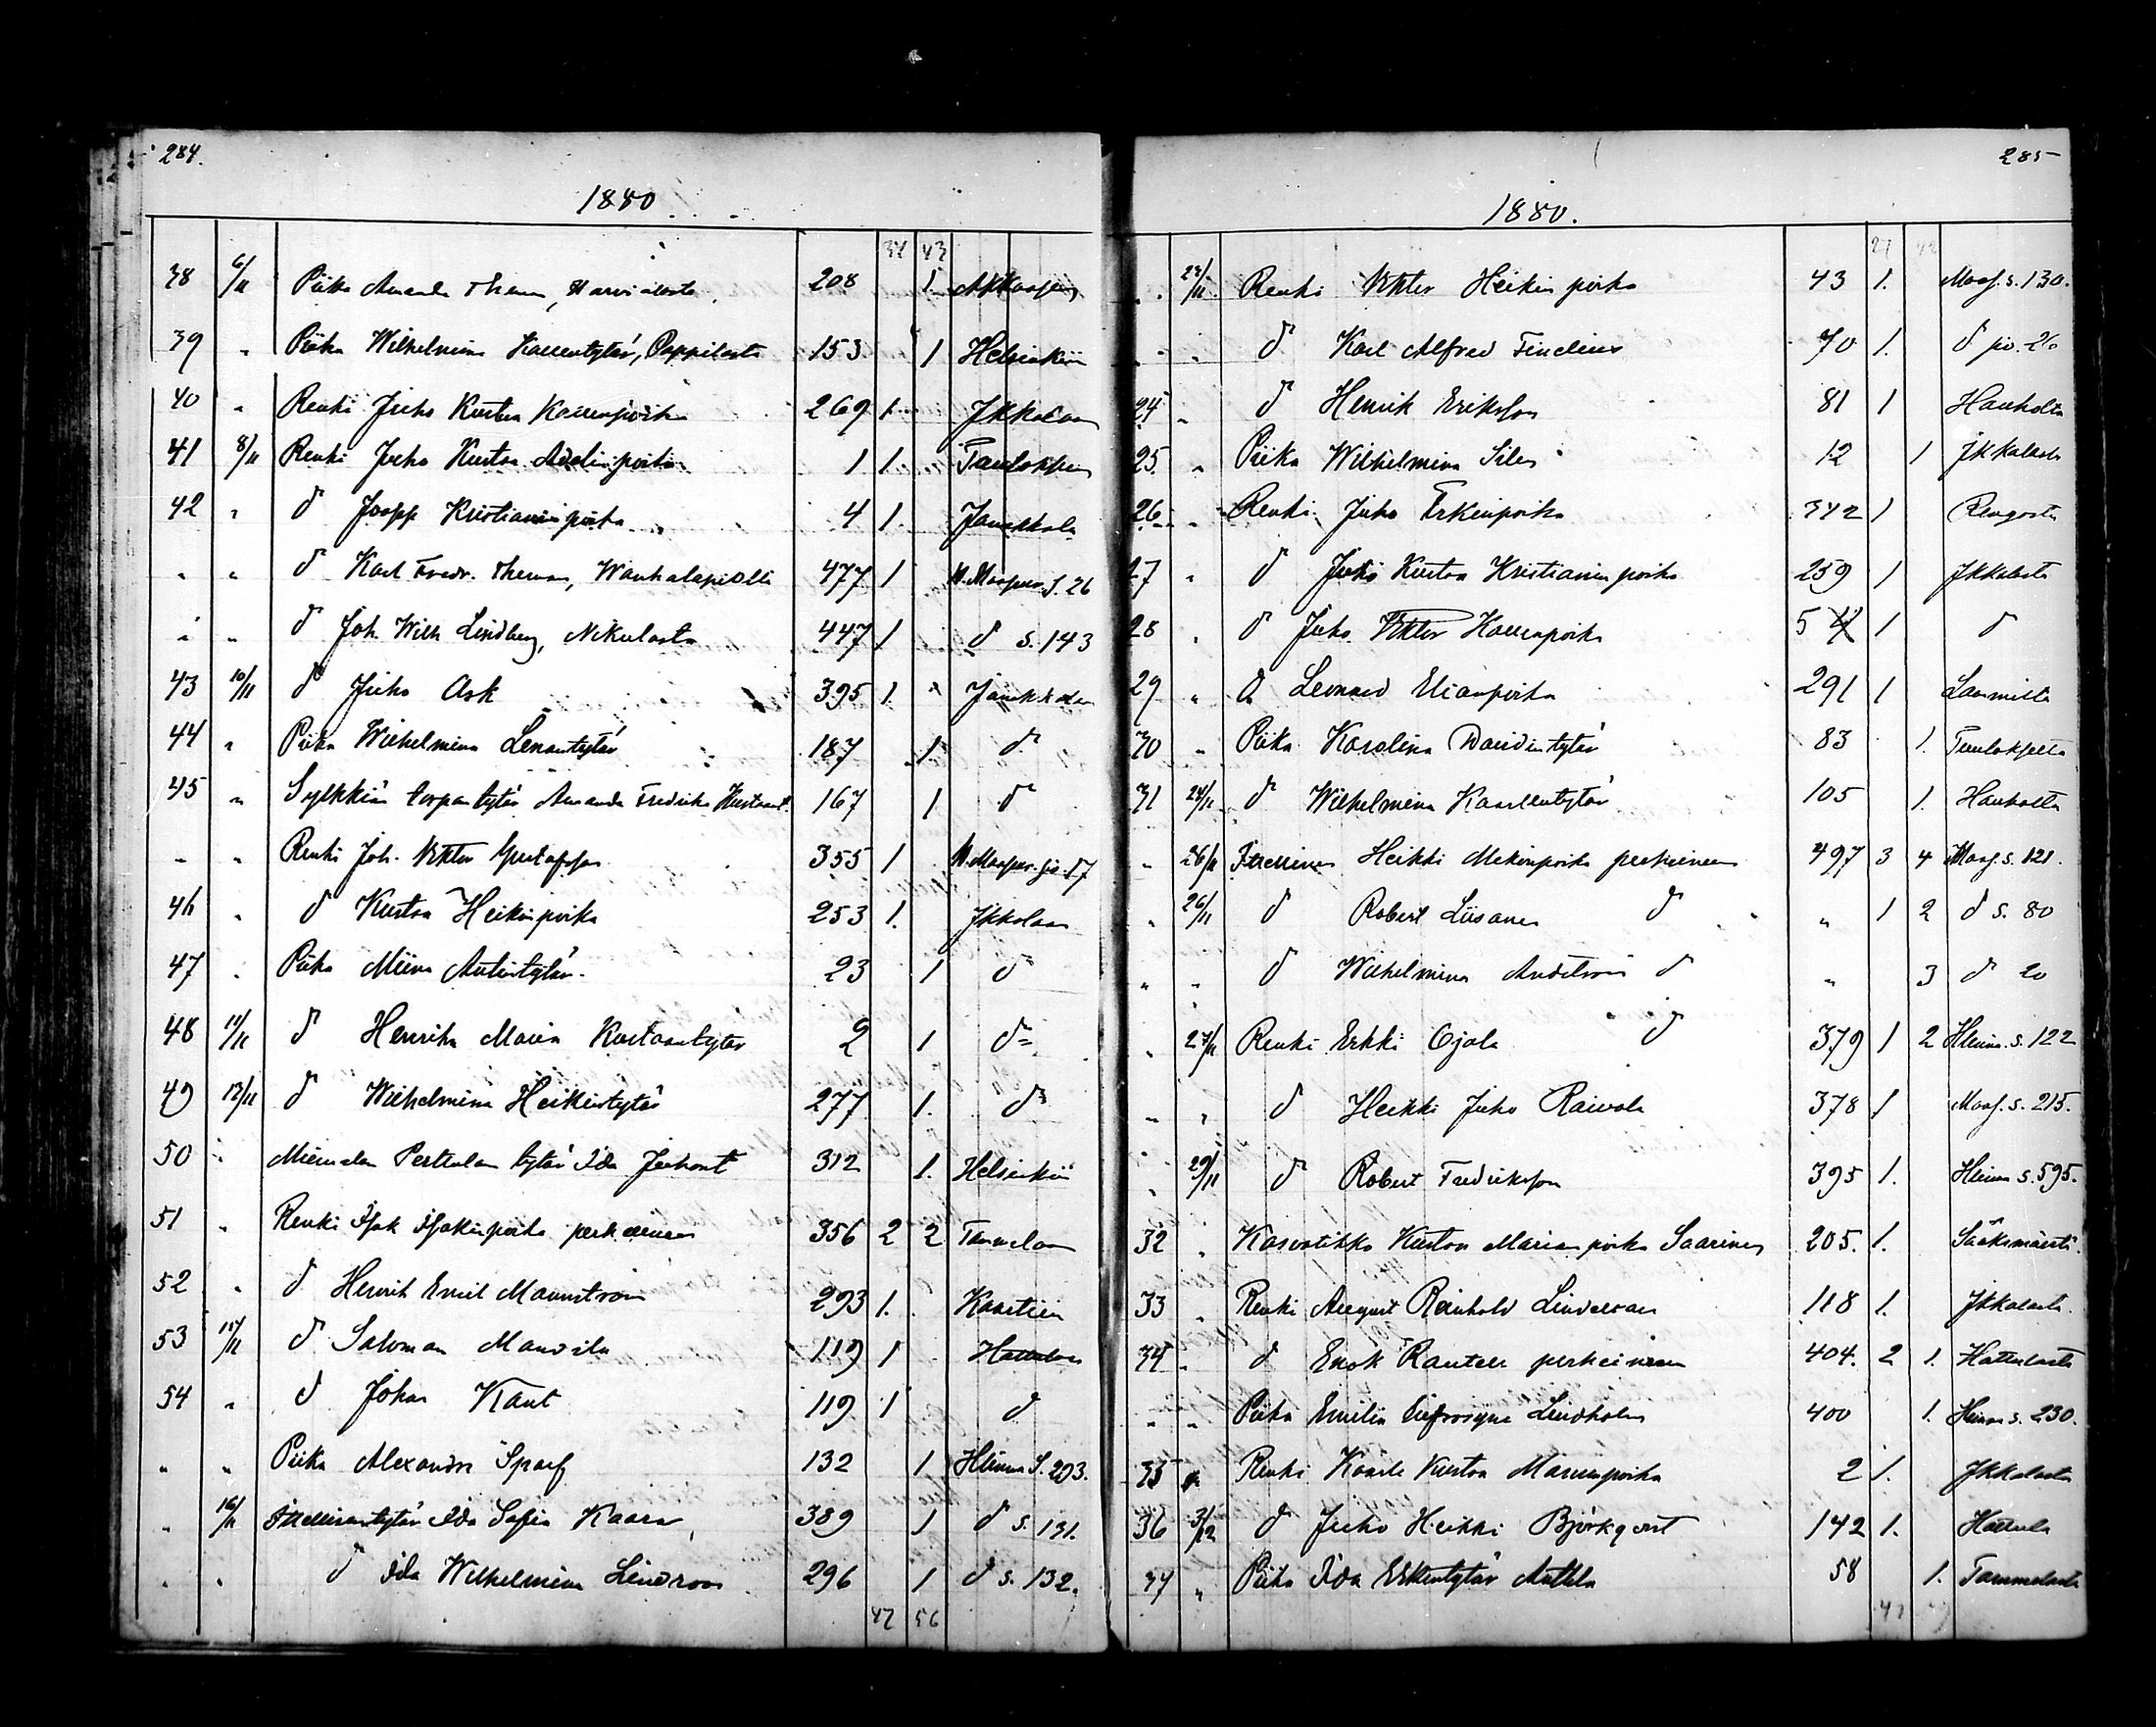 284.
1880
34 43
38 6/11 Piika Amanda Theman, Harvialasta 208 1 Akkaapen
39 " Piika Wilhelmina Kallentytär, Pappilasta 153 1 Helsinkiin
40 " Renki Juho Kustaa Kallenpoika 269 1 Jkkalaan
41 8/11 Renki Juho Kustaa Adelinpoika 1 1 Tuulokseen
42 " d:o Joopp Kristianinpoika 4 1 Janakkala
" " d:o Karl Fredr. Theman, Wanhalapiolli 477 1 M. Maaseur. S. 26
" " d:o Joh. Wilh Lindberg, Nikulasta 447 1 d:o s. 143
43 10/11 d:o Juho Ask 395 1. Janakkalan
44 " Piika Wilhelmina Lenantytär 187 1. d:o
45 " Syllkkiän torpantytär Amanda Fredrika Kustaant. 167 1 d:o
" " Renki Joh. Viktor Gustafsson 355 1 M. Maaseur. siv. 17
46 " d:o Kustaa Heikinpoika 253 1. Jkkalaan
47 " Piika Miina Antintytär 23 1 d:o
48 11/11 d:o Henrika Maria Kustaantytär 2 1 d:o
49 12/11 d:o Wilhelmina Heikintytär 277 1. d:o
50 " Mierolan Perttulan tytär Ida Juhont. 312 1. Helsinkiin
51 " Renki Isak Isakinpoika perheineen 356 2 2 Tammelaan
52 " d:o Henrik Emil Maunström 293 1. Kaartiin
53 15/11 d:o Saloman Mandila 119 1 Hattulaan
54 " d:o Johan Kant 119 1 d:o
" " Piika Alexandra Sparf 132 1 Hlinna S. 203.
" 16/11 Itellisentytär Ida Sofia Kaara 389 1 d:o s. 131.
" " d:o Ida Wilhelmina Lindroos 296 1 d:o s. 132.
47 56
285
1880.
27 42
" 23/11 Renki Viktor Heikinpoika 43 1. Maas. s. 130.
" " d:o Karl Alfred Finelius 70 1. d:o siv. 26
24 " d:o Henrik Eriksson 81 1 Hauholta
25 " Piika Wilhelmina Silen 12 1 Jkkalasta
26 " Renki Juho Erkinpoika 342 1 Rengosta
27 " d:o Juho Kustaa Kristianinpoika 259 1 Jkkalasta
28 " d:o Juho Viktor Kallenpoika 5 1 d:o
29 " d:o Leonard Elianpoika 291 1 Lammilta
30 " Piika Karolina Davidintytär 83 1. Tuulokselta
31 24/11 d:o Wilhelmina Kaarlentytär 105 1. Hauholta
" 26/11 Itellinen Heikki Mikinpoika perheineen 497 3 4 Maas. s. 121.
" 26/11 d:o Robert Liisanen d:o " 1 2 d:o s. 80
" " d:o Wilhelmina Andström d:o " 3 d:o 20
" 27/11 Renki Erkki Ojala d:o 379 1 2 Hlinna. s. 122
" " d:o Heikki Juho Raivola 378 1 Maas. s. 215.
" 29/11 d:o Robert Fredriksson 395 1. Hlinna s. 595.
32 " Kasvatikko Kustaa Marianpoika Saarinen 205. 1. Sääksmäestä
33 " Renki August Reinhold Lindroos 118 1. Jkkalasta.
34 " d:o Enok Rautell perheineen 404. 2 1. Hattulasta
" " Piika Emilia Eufrosyne Lindholm 400 1. Hlinna s. 230.
35 " Renki Kaarle Kustaa Marianpoika 2 1. Jkkalasta
36 3/12 d:o Juho Heikki Björkqvist 142 1. Hattula
37 " Piika Ida Erkintytär Anttila 58 1. Tammelasta
41